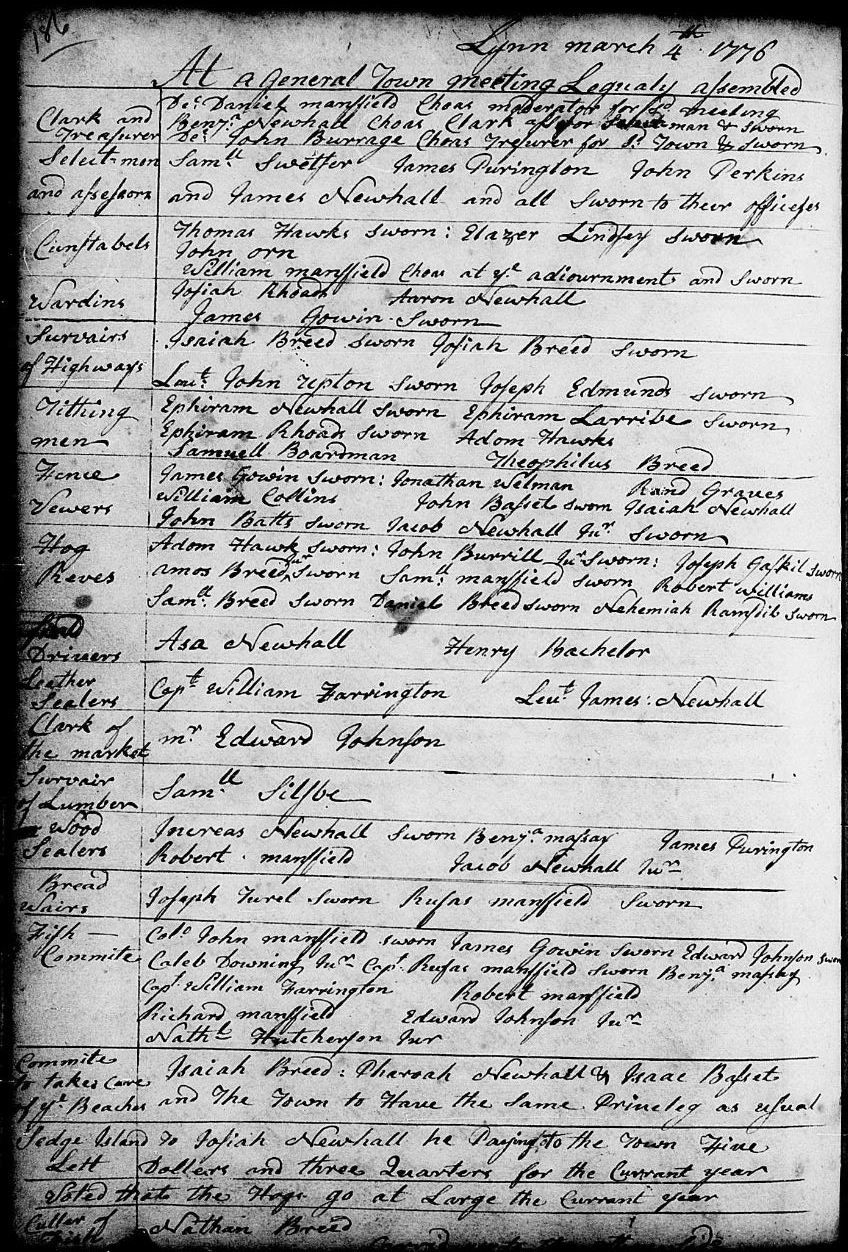 186
Lynn march 4th 1776
At a general Town meeting Legualy assembled
Clark and
Treasurer
Den: Daniel mansfield Choas moderator for sd meeting
Benja: Newhall Choas Clark assesor Selectman & Sworn
Den: John Burrage Choas Tresurer for sd: Town & Sworn
Select-men
and assessors
Samll Swetser James Purington John Perkins
and James Newhall and all Sworn to their officeses
Cunstabels
Thomas Hawks sworn: Elazer Lindsey sworn
John orn
William mansfield Choas at ye adiournment and sworn
Wardins
Josiah Rhoads Aaron Newhall
James Gowin Sworn
Survairs
of Highways
Isaiah Breed sworn Josiah Breed sworn
Leut: John Upton sworn Joseph Edmunds sworn
Tithing
men
Ephiram Newhall sworn Ephiram Larribe sworn
Ephiram Rhoads sworn Adom Hawks
Samuell Boardman Theophilus Breed
Fence
Vewers
James Gowin sworn: Jonathan Welman Rand Graves
William Collins John Basset sworn Isaiah Newhall
John Batts sworn Jacob Newhall Jur sworn
Hog
Reves
Adom Hawks sworn: John Burrill Jur sworn: Joseph Gaskil sworn
amos Breed Jur sworn Samll: mansfield sworn Robert williams
Samll: Breed sworn Daniel Breed sworn Nehemiah Ramsdil sworn
Drivers
Asa Newhall Henry Bachelor
Leather
Sealers
Capt William Farrington Leut James: Newhall
Clark of
the market
mr Edward Johnson
Survair
of Lumber
Samll Silsbe
Wood
Sealers
Increas Newhall sworn Benja massay James Purington
Robert mansfield Jacob Newhall Jur
Bread
Wairs
Joseph Turel sworn Rufas mansfield sworn
Fish
Commite
Colo John mansfield sworn James Gowin sworn Edward Johnson sworn
Caleb Downing Jur Capt Rufas mansfield sworn Benja massay
Capt William Farrington Robert mansfield
Richard mansfield Edward Johnson Jur
Nathl Hutcherson Jur
Commite
to takes Care
of ye Beaches
Isaiah Breed: Pharoah Newhall & Isaac Basset
and the Town to Have the Same Priveleg as usual
Sedge Island
Lett
To Josiah Newhall he Paying to the Town Five
Dollers and three Quarters for the Currant year
Voted that the Hogs go at Large the Currant year
Culler of
Fish
Nathan Breed